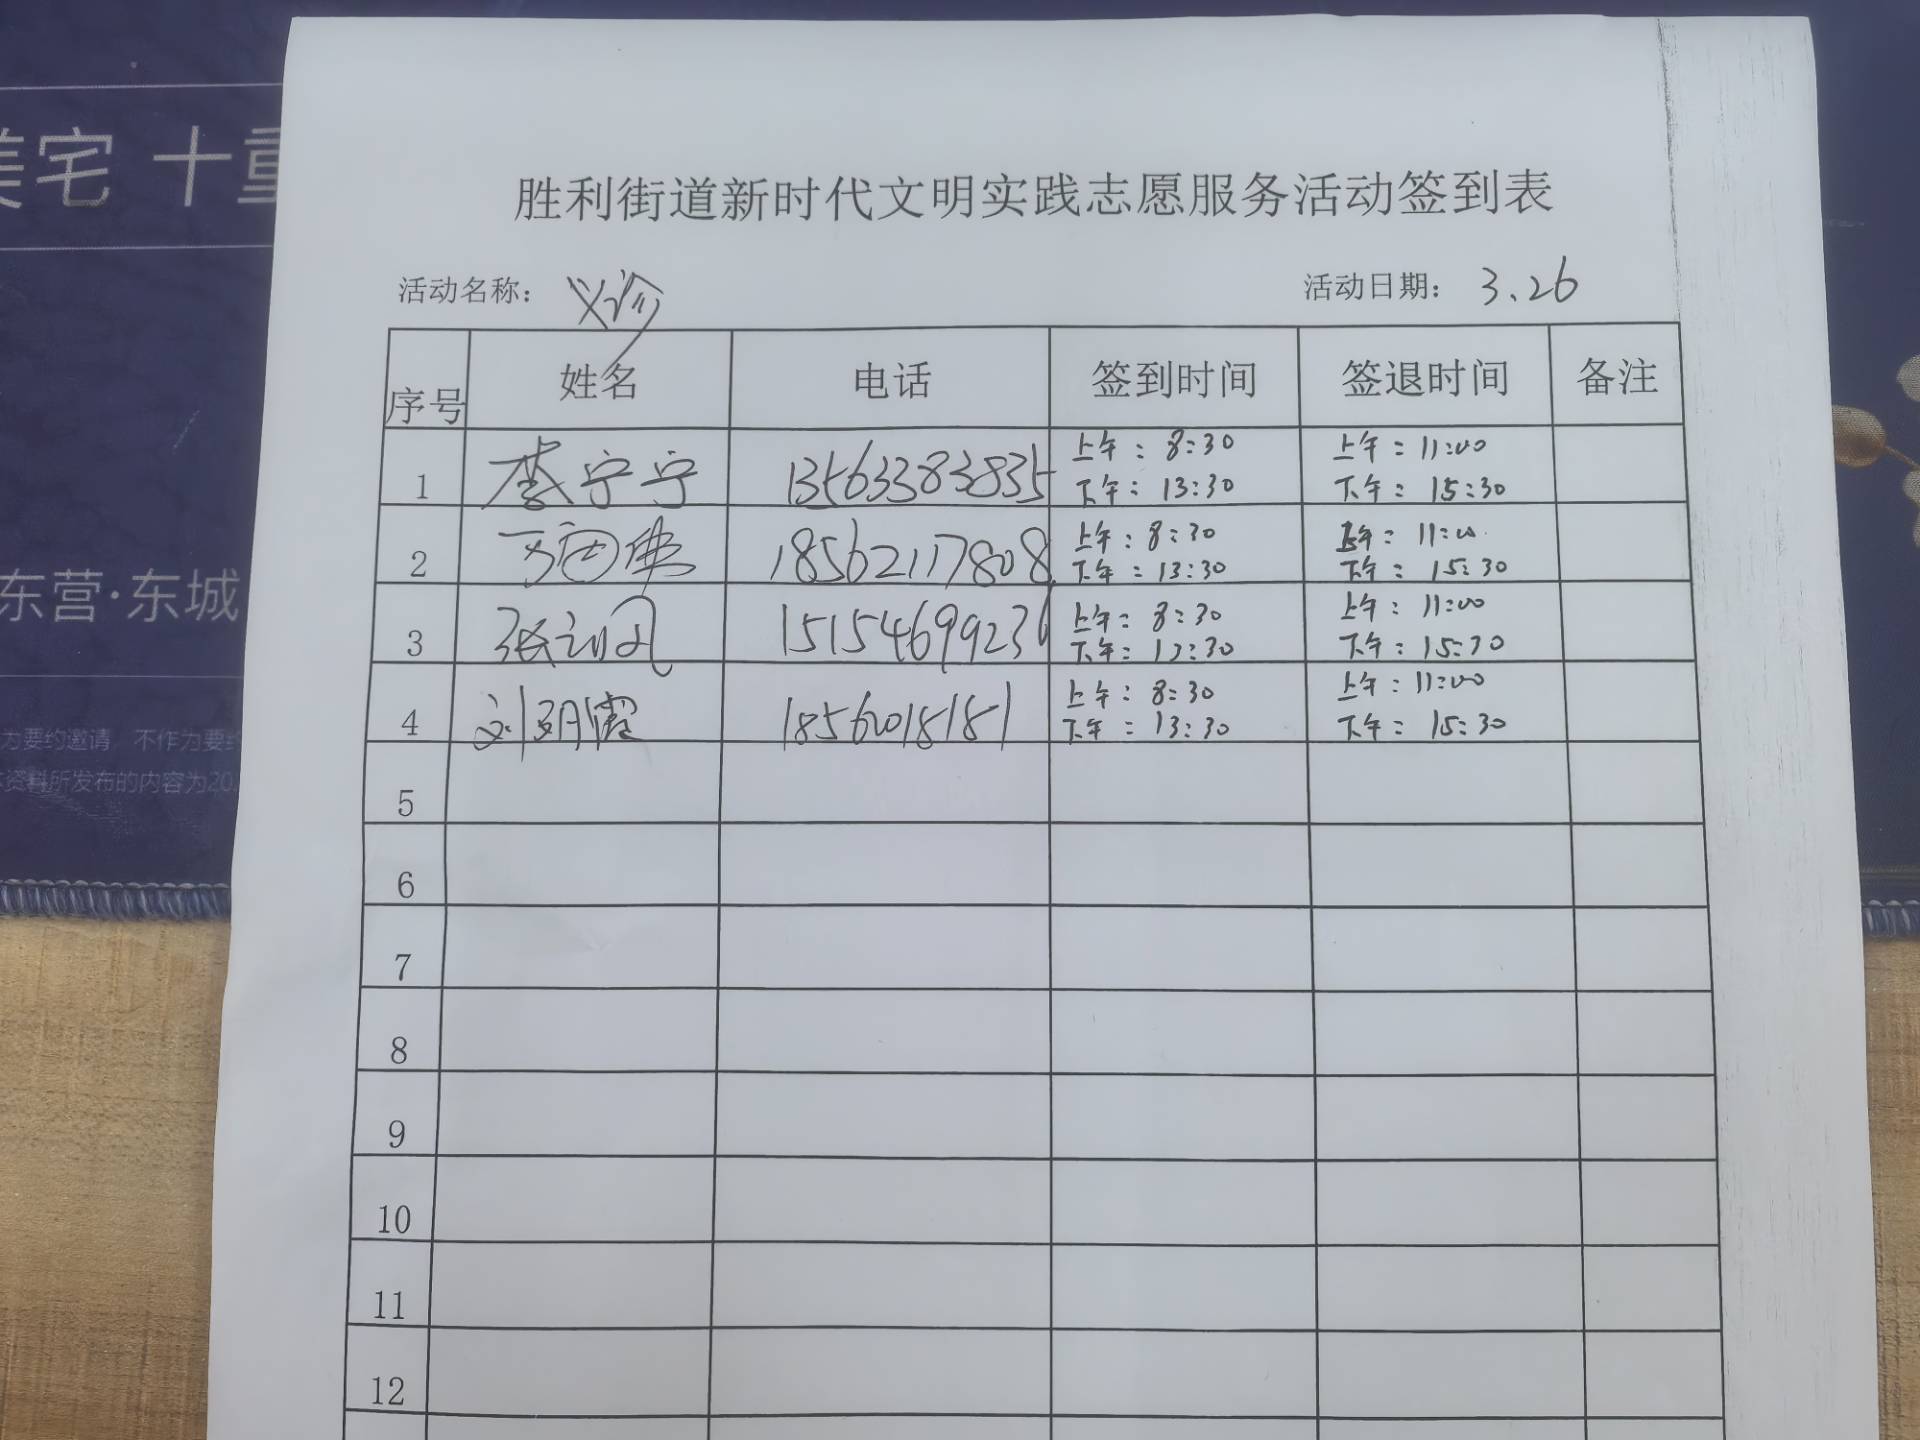 美宅 十重
东营·东城
为要约邀请，不作为要约
本资料所发布的内容为20
胜利街道新时代文明实践志愿服务活动签到表
活动名称： 义诊 活动日期： 3.26
序号 姓名 电话 签到时间 签退时间 备注
1 李宁宁 13563383835 上午：8:30 上午：11:00
下午：13:30 下午：15:30
2 18562117808 上午：8:30 上午：11:00
下午：13:30 下午：15:30
3 张 15154699236 上午：8:30 上午：11:00
下午：13:30 下午：15:30
4 刘明霞 18560018181 上午：8:30 上午：11:00
下午：13:30 下午：15:30
5
6
7
8
9
10
11
12